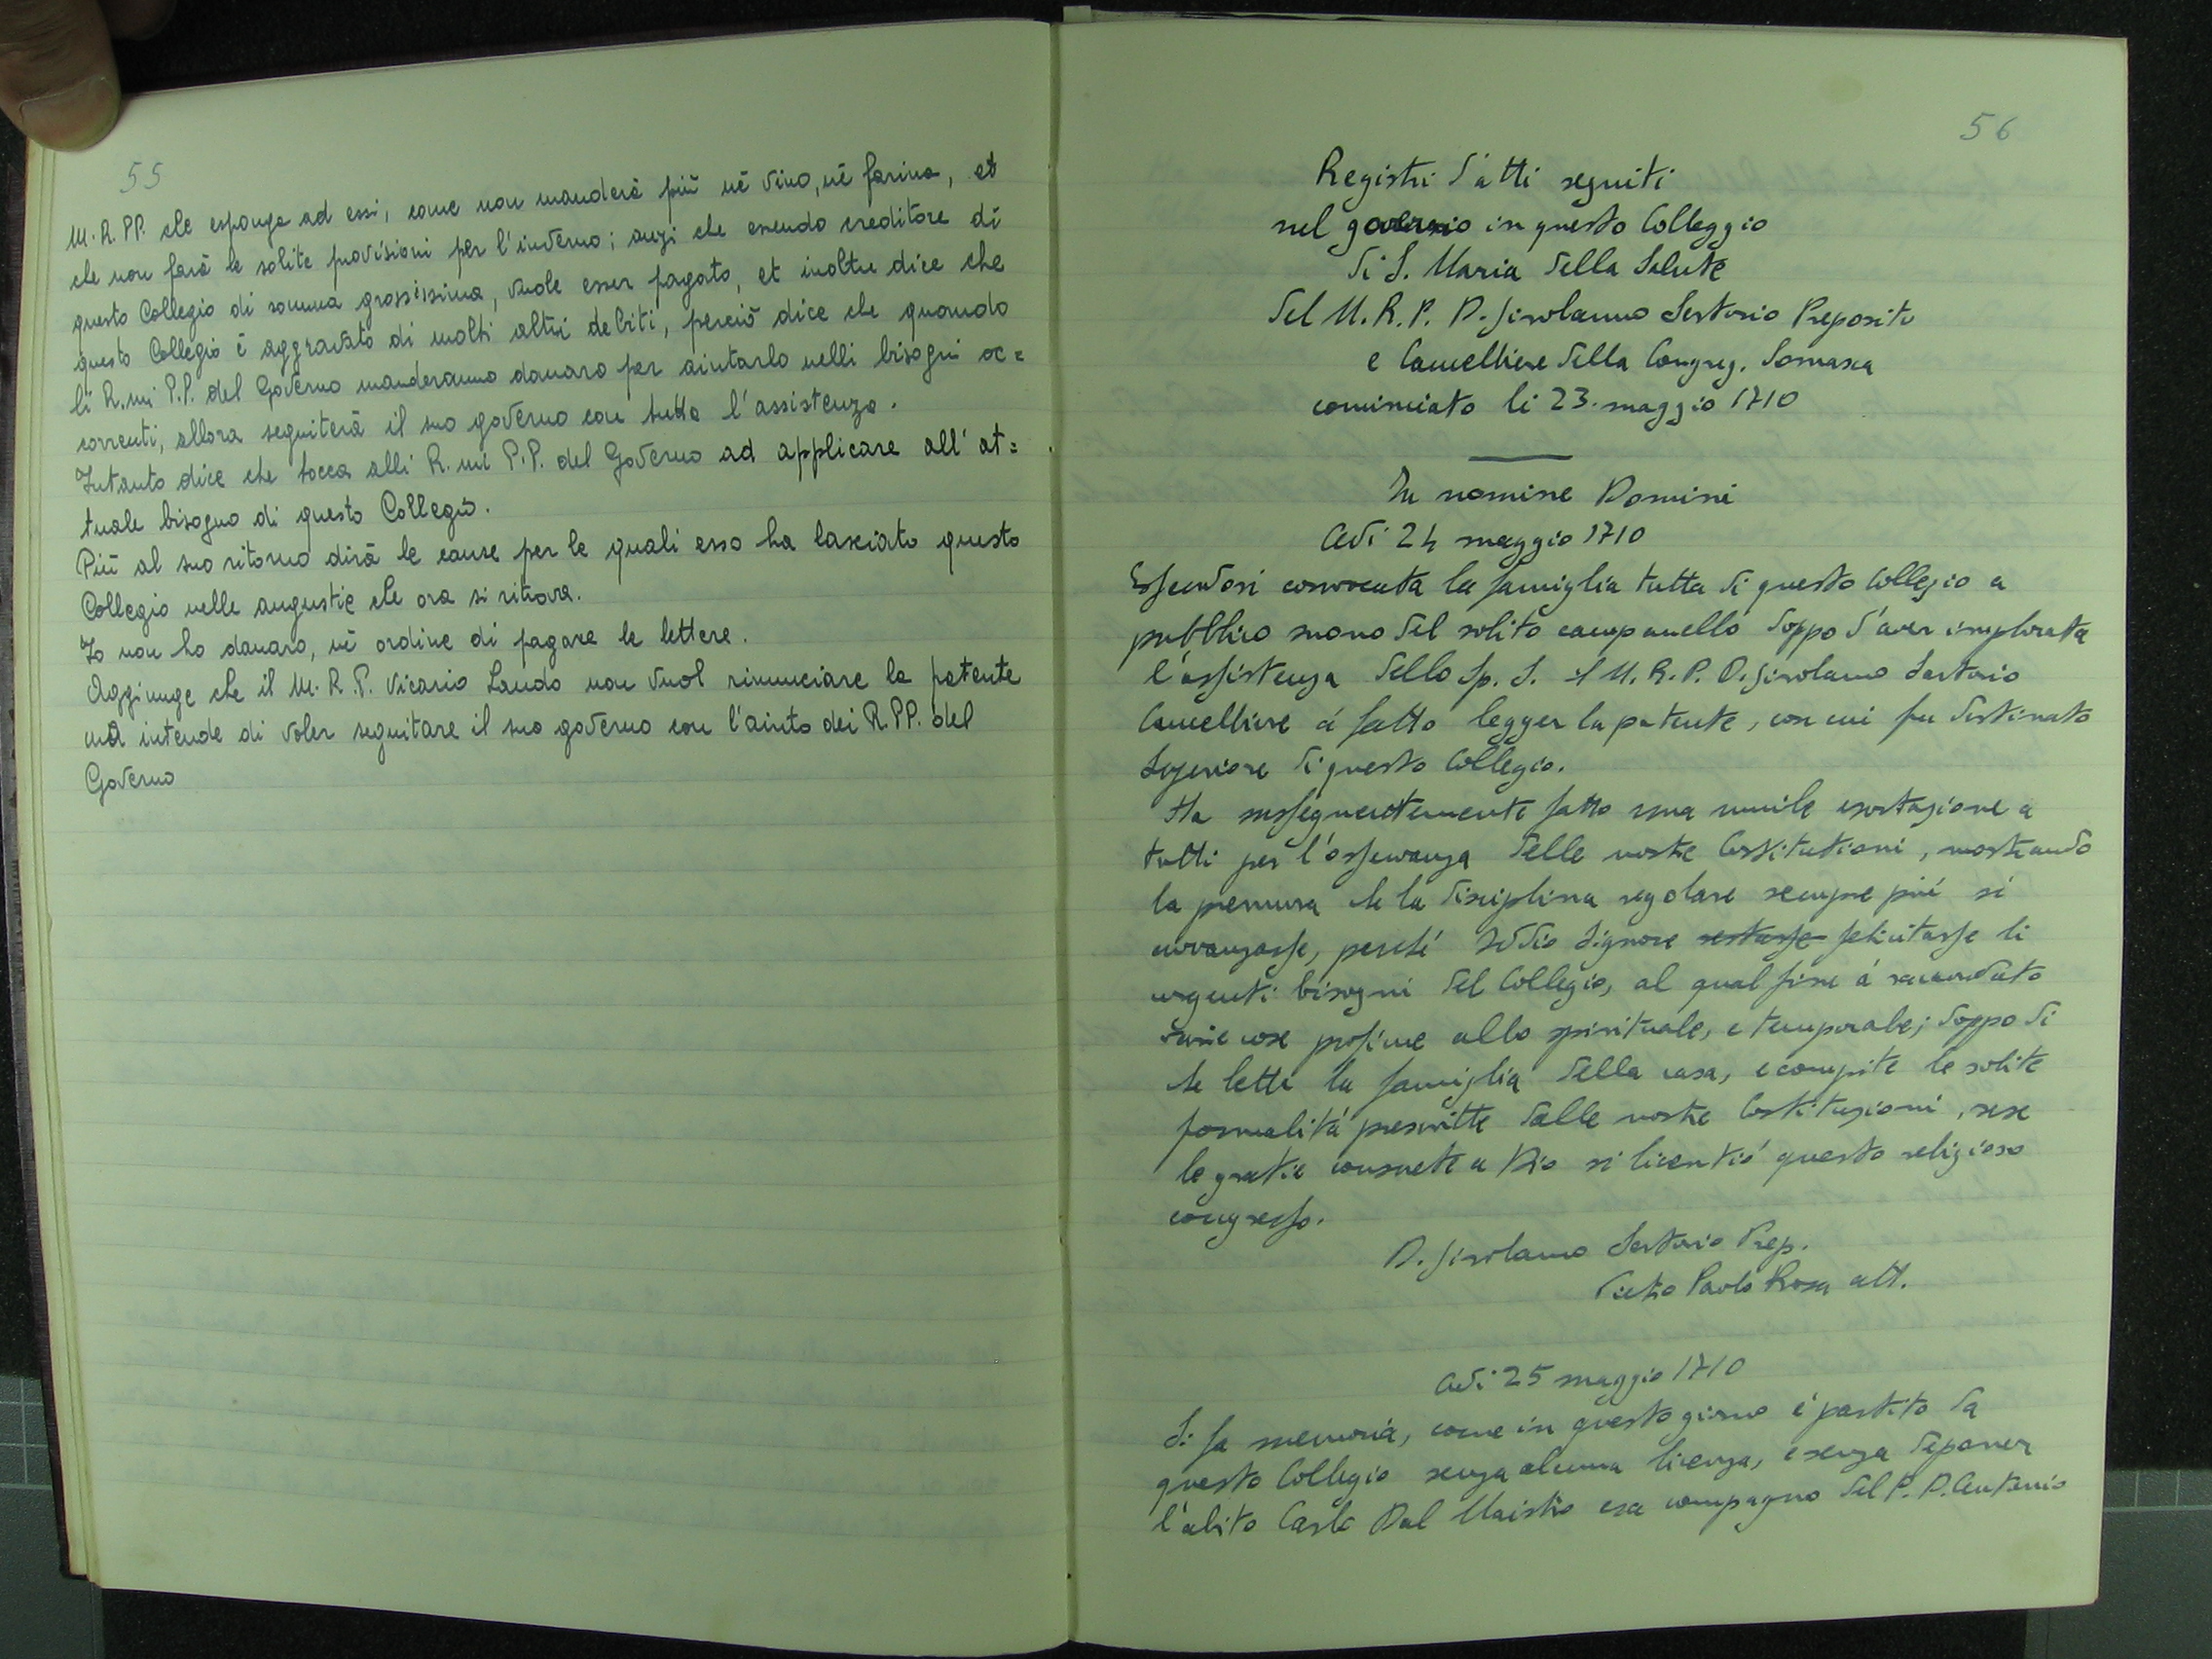 55
M. R. PP. che esponga ad essi, come non manderà più nè vino, nè farina, et
che non farà le solite provisioni per l'inverno; anzi che essendo creditore di
questo Collegio di somma grossissima, vuole esser pagato, et inoltre dice che
questo Collegio è aggravato di molti altri debiti, perciò dice che quando
li R.mi P.P. del Governo manderanno danaro per aiutarlo nelli bisogni oc=
correnti, allora seguiterà il suo governo con tutta l'assistenza.
Intanto dice che tocca alli R.mi P.P. del Governo ad applicare all'at=
tuale bisogno di questo Collegio.
Più al suo ritorno dirà le cause per le quali esso ha lasciato questo
Collegio nelle angustie che ora si ritrova.
Io non ho danaro, nè ordine di pagare le lettere.
Aggiunge che il M. R. P. Vicario Lando non vuol rinunciare la patente
ma intende di voler seguitare il suo governo con l'aiuto dei R. PP. del
Governo
56
Registri d'atti seguiti
nel governo in questo Colleggio
di S. Maria della Salute
del M. R. P. D. Girolamo Sertorio Preposito
e Cancelliere della Congreg. Somasca
cominciato li 23. maggio 1710
In nomine Domini
Adi 24 maggio 1710
Essendosi convocata la famiglia tutta di questo Collegio a
pubblico suono del solito campanello doppo d'aver implorata
l'assistenza dello Sp. S. il M. R. P. D. Girolamo Sertorio
Cancelliere á fatto legger la patente, con cui fu destinato
Superiore di questo Collegio.
Ha susseguentemente fatto una umile esortazione a
tutti per l'osservanza delle nostre Costitutioni, mostrando
la premura che la disciplina regolare sempre piú si
avvanzasse, perché Iddio Signore restasse felicitasse li
urgenti bisogni del Collegio, al qual fine á raccordato
varie cose prossime allo spirituale, e temporale; doppo di
che letta la famiglia della casa, e compite le solite
formalitá prescritte dalle nostre Costituzioni, rese
le gratie consuete a Dio si licentió questo religioso
congresso.
D. Girolamo Sertorio Prep.
Pietro Paolo Rosa att.
Adi 25 maggio 1710
Si fa memoria, come in questo giorno é partito da
questo Collegio senza alcuna licenza, e senza deponer
l'abito Carlo Dal Maistro era compagno del P. D. Antonio